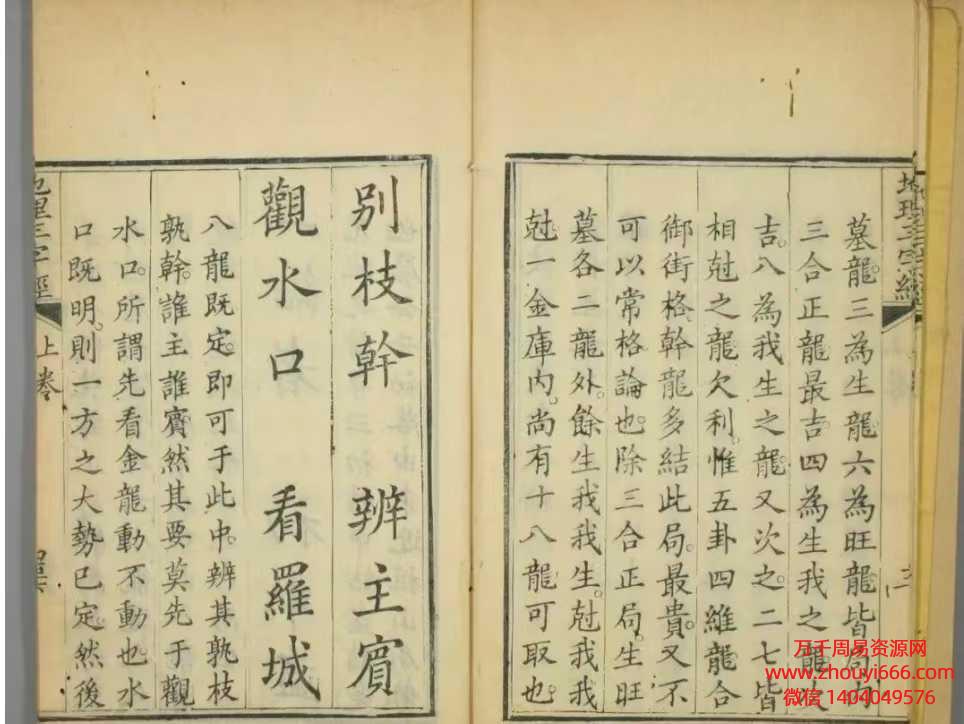 墓龍三為生龍六為旺龍皆局內
三合正龍最吉四為生我之龍次
吉八為我生之龍又次之二七皆
相尅之龍欠利惟五卦四維龍合
御街格幹龍多結此局最貴又不
可以常格論也除三合正局生旺
墓各二龍外餘生我我生尅我我
尅一金庫內尚有十八龍可取也
別枝幹 辨主賓
觀水口 看羅城
八龍既定即可于此中辨其孰枝
孰幹誰主誰賓然其要莫先于觀
水口所謂先看金龍動不動也水
口既明則一方之大勢已定然後
地理三字經
上卷
万千周易资源网
www.zhouyi666.com
微信 1404049576